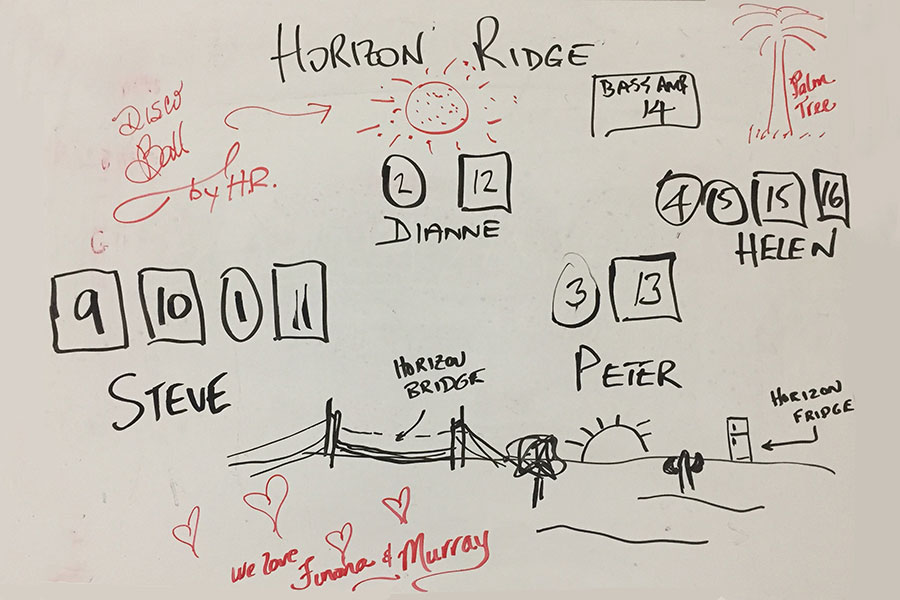 HORIZON RIDGE
Disco
Ball
by HR.
BASS AMP
14
Palm
Tree
2 12
DIANNE
4 5 15 16
HELEN
9 10 1 11
STEVE
3 13
PETER
HORIZON
BRIDGE
HORIZON
FRIDGE
we love & Murray